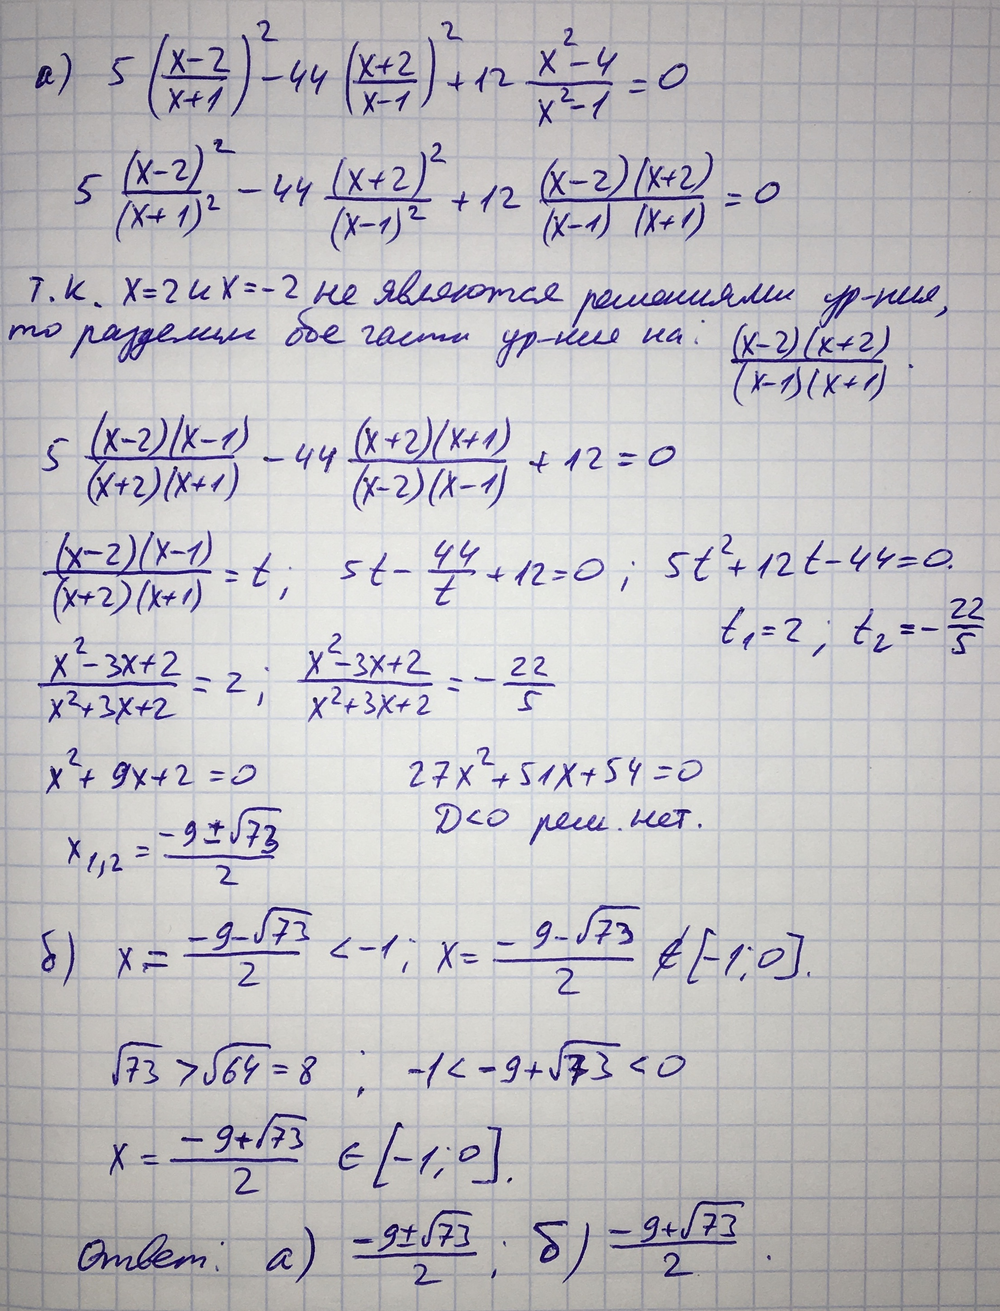 а) 5 ((x-2)/(x+1))² - 44 ((x+2)/(x-1))² + 12 (x²-4)/(x²-1) = 0
5 (x-2)²/(x+1)² - 44 (x+2)²/(x-1)² + 12 (x-2)(x+2)/((x-1)(x+1)) = 0
т.к. x=2 и x=-2 не являются решениями ур-ния,
то разделим обе части ур-ния на: (x-2)(x+2)/((x-1)(x+1)).
5 (x-2)(x-1)/((x+2)(x+1)) - 44 (x+2)(x+1)/((x-2)(x-1)) + 12 = 0
(x-2)(x-1)/((x+2)(x+1)) = t; 5t - 44/t + 12 = 0; 5t² + 12t - 44 = 0.
t₁ = 2; t₂ = -22/5
(x²-3x+2)/(x²+3x+2) = 2; (x²-3x+2)/(x²+3x+2) = -22/5
x² + 9x + 2 = 0 27x² + 51x + 54 = 0
x₁,₂ = (-9±√73)/2 D<0 реш. нет.
б) x = (-9-√73)/2 < -1; x = (-9-√73)/2 ∉ [-1;0].
√73 > √64 = 8; -1 < -9+√73 < 0
x = (-9+√73)/2 ∈ [-1;0].
Ответ: а) (-9±√73)/2; б) (-9+√73)/2.